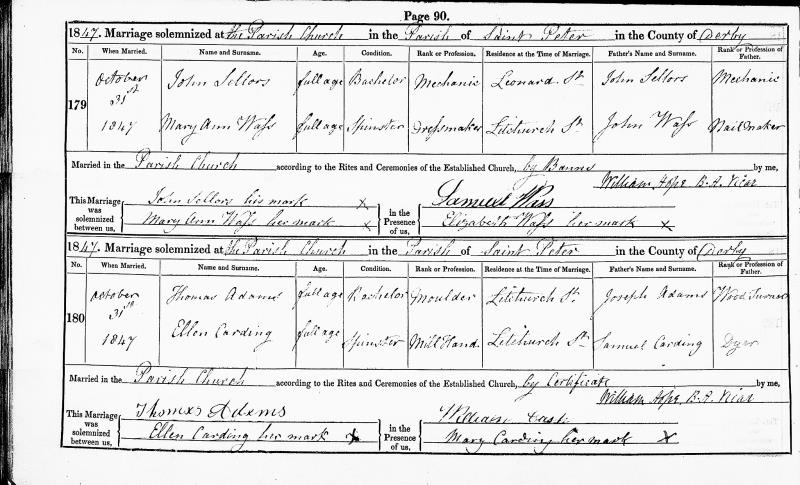 Page 90.
1847. Marriage solemnized at the Parish Church in the Parish of Saint Peter in the County of Derby
No. When Married. Name and Surname. Age. Condition. Rank or Profession. Residence at the Time of Marriage. Father's Name and Surname. Rank or Profession of Father.
179 October 31st 1847 John Sellors full age Bachelor Mechanic Leonard St. John Sellors Mechanic
Mary Ann Wass full age Spinster Dressmaker Litchurch St. John Wass Nailmaker
Married in the Parish Church according to the Rites and Ceremonies of the Established Church, by Banns by me,
William Hope B.A. Vicar
This Marriage was solemnized between us, John Sellors his mark X in the Presence of us, Samuel Wass
Mary Ann Wass her mark X Elizabeth Wass her mark X
1847. Marriage solemnized at the Parish Church in the Parish of Saint Peter in the County of Derby
No. When Married. Name and Surname. Age. Condition. Rank or Profession. Residence at the Time of Marriage. Father's Name and Surname. Rank or Profession of Father.
180 October 31st 1847 Thomas Adams full age Bachelor Moulder Litchurch St. Joseph Adams Wood Turner
Ellen Carding full age Spinster Mill Hand. Litchurch St. Samuel Carding Dyer
Married in the Parish Church according to the Rites and Ceremonies of the Established Church, by Certificate by me,
William Hope B.A. Vicar
This Marriage was solemnized between us, Thomas Adams in the Presence of us, William
Ellen Carding her mark X Mary Carding her mark X